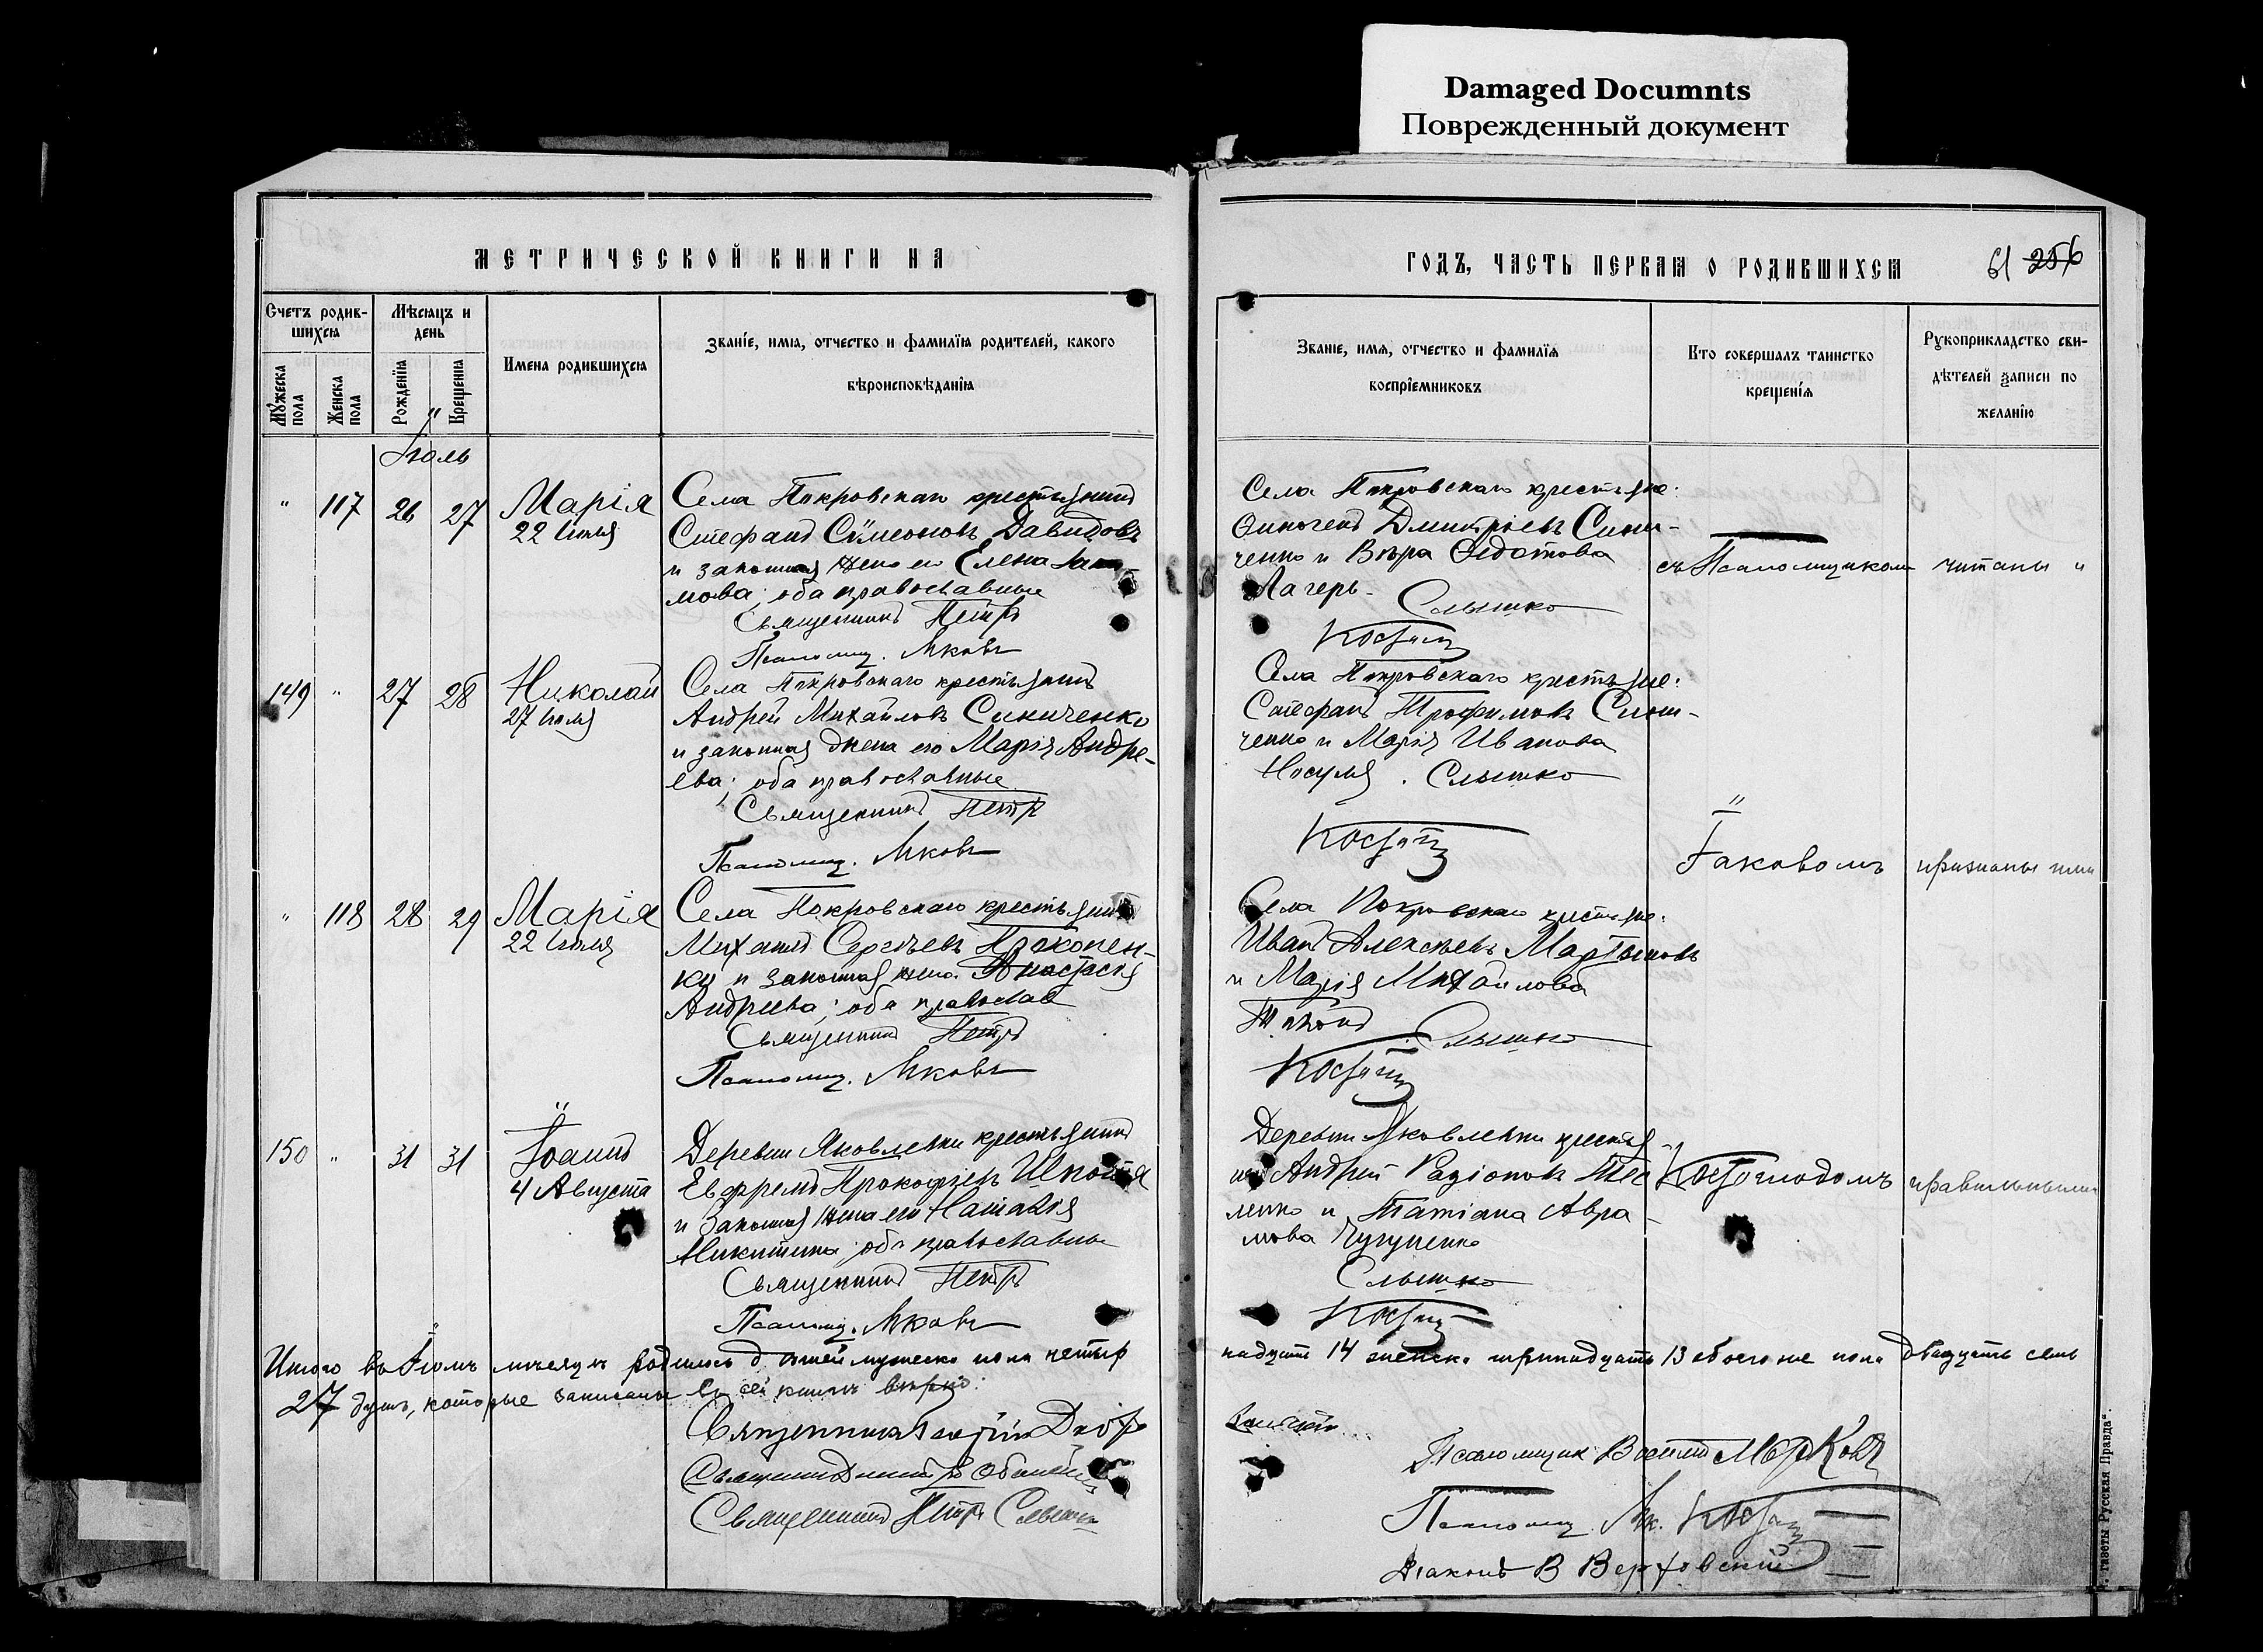 Damaged Documnts
Поврежденный документ
МЕТРИЧЕСКОЙ КНИГИ НА
ГОДЪ, ЧАСТЬ ПЕРВАЯ О РОДИВШИХСЯ
61 256
Счетъ родив-
шихся
Мѣсяцъ и
день
Мужеска
пола
Женска
пола
Рожденія
Крещенія
Имена родившихся
Званіе, имя, отчество и фамилія родителей, какого
вѣроисповѣданія
Званіе, имя, отчество и фамилія
воспріемниковъ
Кто совершалъ таинство
крещенія
Рукоприкладство сви-
дѣтелей записи по
желанію
Іюль
" 117 26 27 Марія
22 Іюля
Села Покровскаго крестьянинъ
Стефанъ Сѵмеоновъ Давидовъ
и законная жена его Елена
мова; оба православные
Священникъ Петръ
Псаломщ. Яковъ
Села Покровскаго крестьяне:
Дмитріевъ Сини-
ченко и Вѣра Ѳедотова
Лагерь
Слышко
съ Псаломщикомъ
читаны "
149 " 27 28 Николай
27 Іюля
Села Покровскаго крестьянинъ
Андрей Михайловъ Синиченко
и законная жена его Марія Андре-
ева; оба православные
Священникъ Петръ
Псаломщ. Яковъ
Села Покровскаго крестьяне:
Стефанъ Трофимовъ Сини-
ченко и Марія Иванова
Носуля. Слышко
Іаковомъ
признаны
" 118 28 29 Марія
22 Іюля
Села Покровскаго крестьянинъ
Михаилъ Сергіевъ Прокопен-
ко и законная жена Анастасія
Андреева; оба православ
Священникъ Петръ
Псаломщ. Яковъ
Села Покровскаго крестьяне:
Иванъ Алексѣевъ Мартыновъ
и Марія Михайлова
Слышко
150 " 31 31 Іоаннъ
4 Августа
Деревни Яковлевки крестьянинъ
Евфремъ Прокофіевъ
и законная жена его Наталія
Никитина; оба православные
Священникъ Петръ
Псаломщ. Яковъ
Деревни Яковлевки крестья-
не Андрей Родіоновъ Тес
ленко и Татіана Авра-
мова Чугуненко
Слышко
правильными
Итого въ Іюлѣ мѣсяцѣ родилось дѣтей мужеска пола четыр
надцать 14 женска тринадцать 13 обоего же пола двадцать семь
27 душъ, которые записаны въ сей книгѣ вѣрно:
Священникъ
Священникъ Дмитрій
Священникъ Петръ Слышко
Псаломщикъ
Псаломщ. Як.
Діаконъ В Верховскій
газеты Русская Правда".